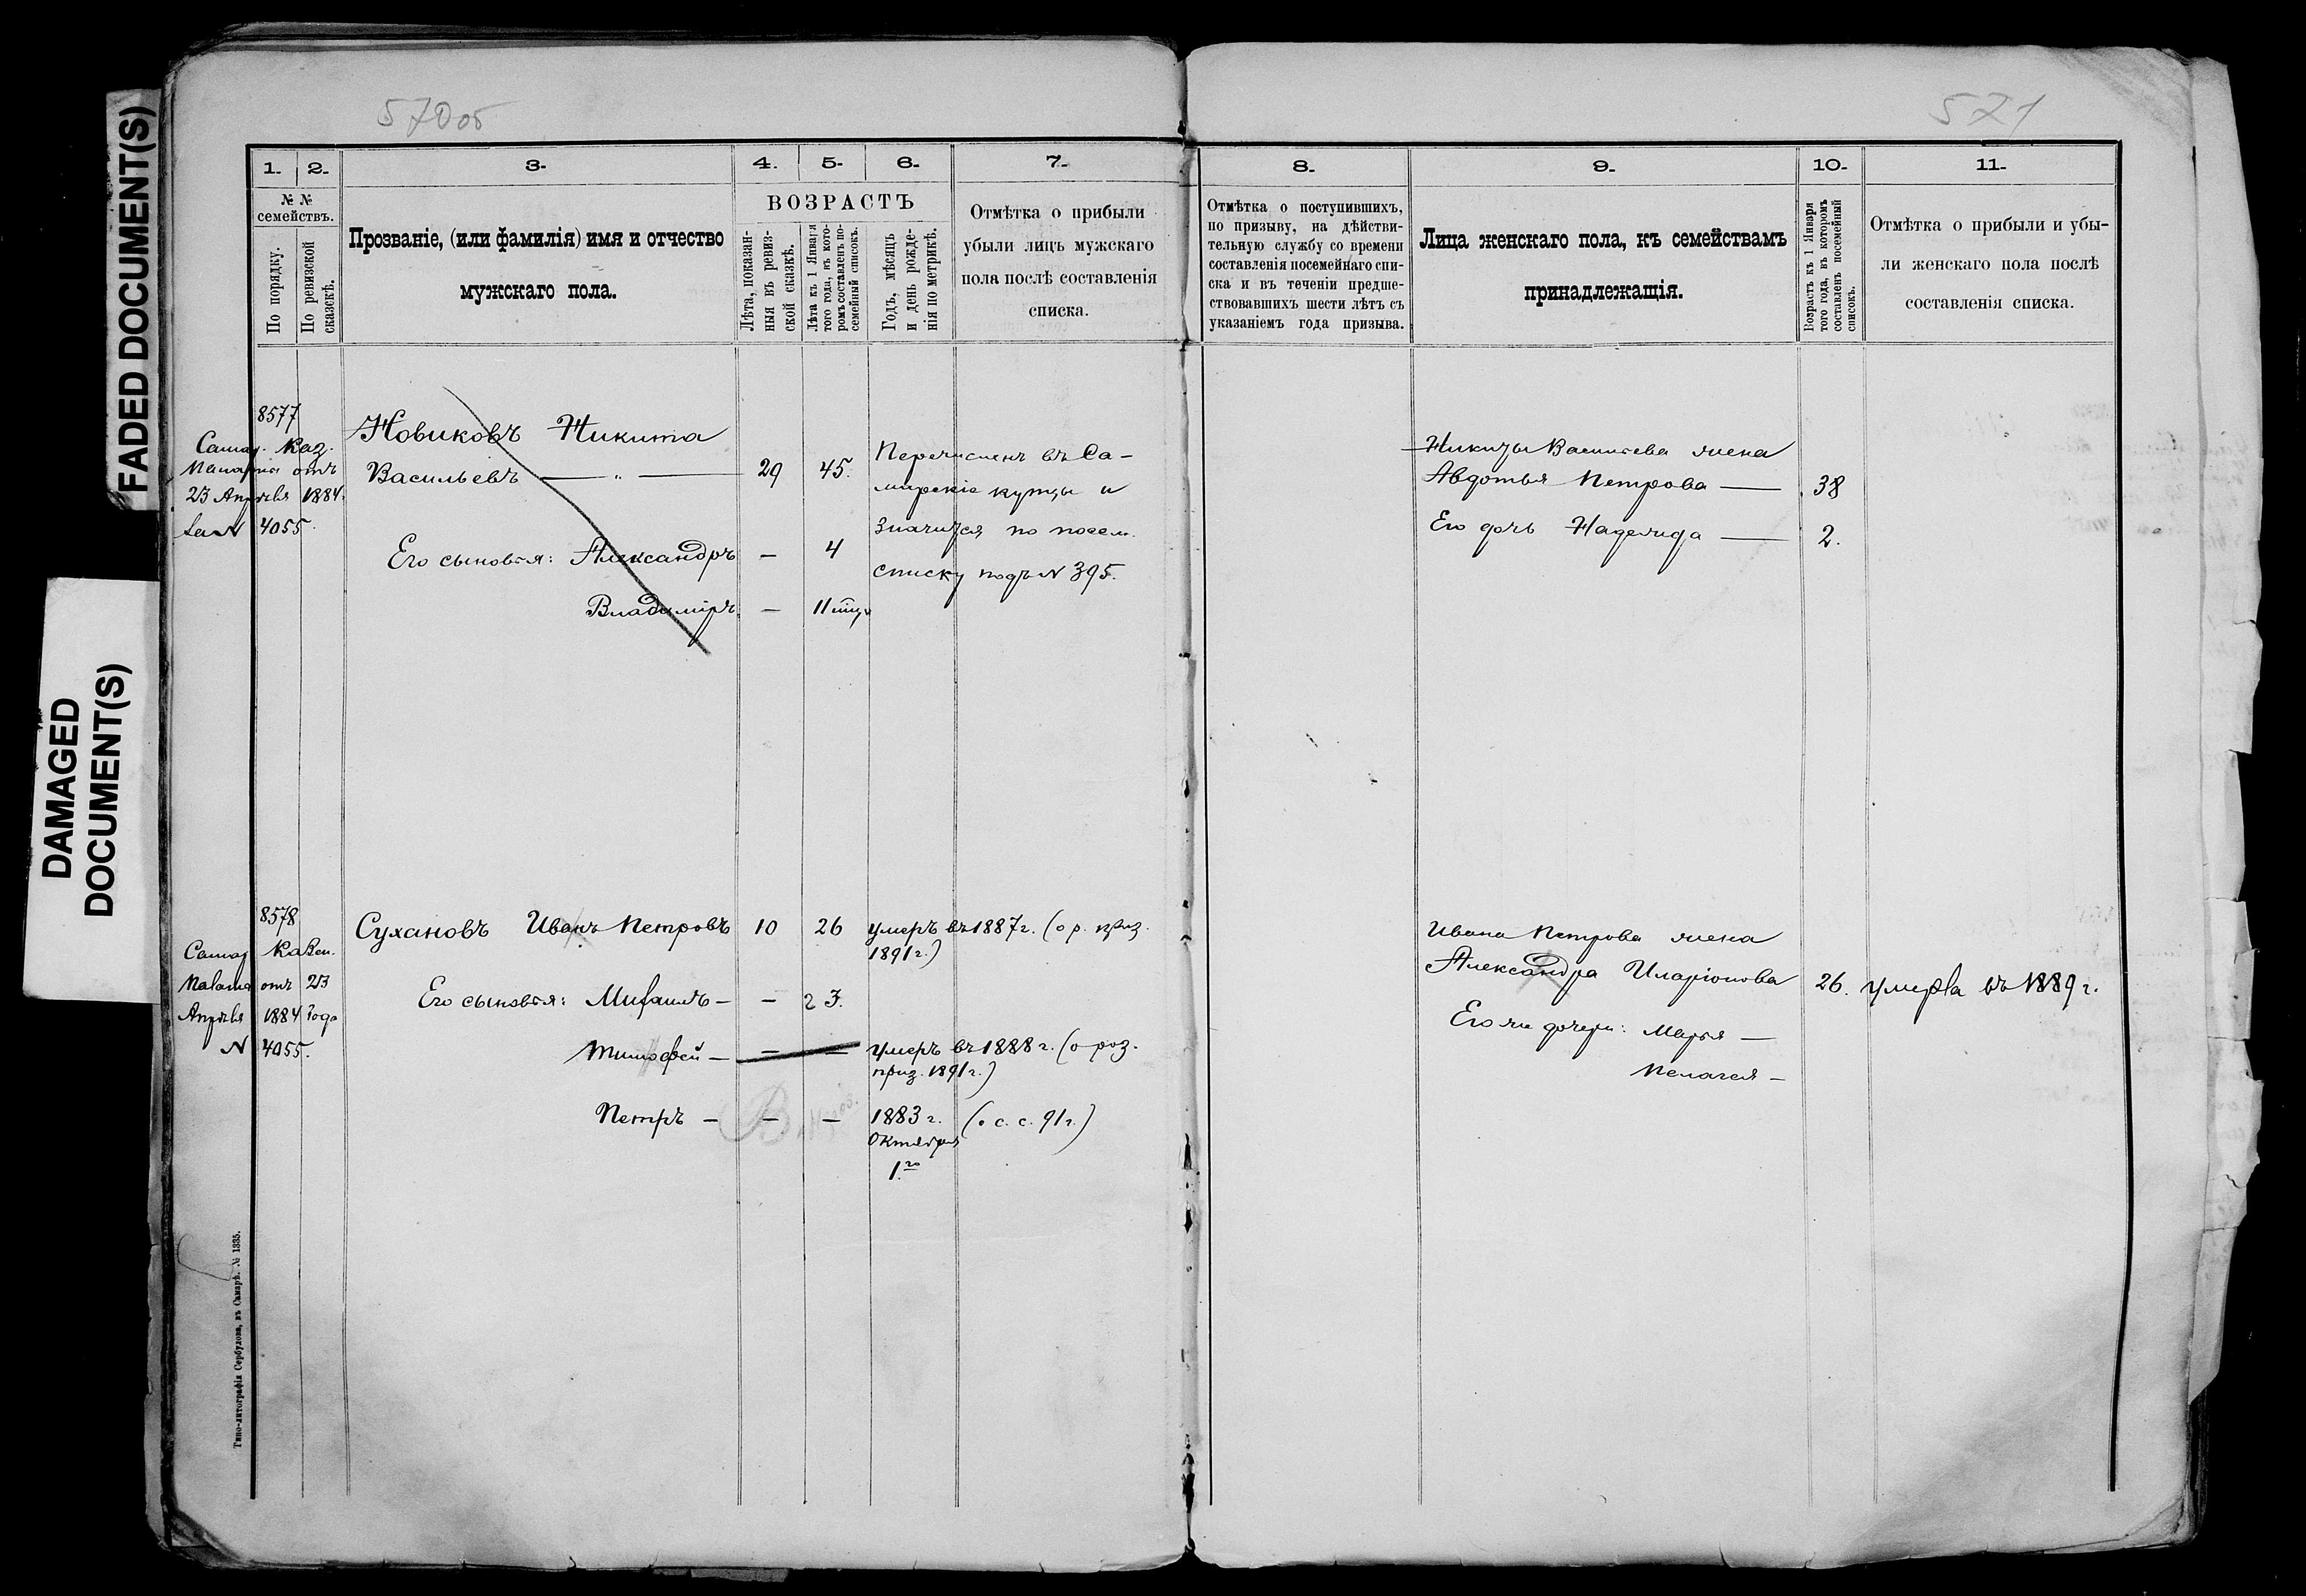 FADED DOCUMENT(S)
DAMAGED
DOCUMENT(S)
570об
571
1.
2.
3.
4.
5.
6.
7.
№ №
семействъ.
По порядку.
По ревизской
сказкѣ.
Прозваніе, (или фамилія) имя и отчество
мужскаго пола.
ВОЗРАСТЪ
Лѣта, показан-
ныя въ ревиз-
ской сказкѣ.
Лѣта къ 1 Января
того года, въ кото-
ромъ составленъ по-
семейный списокъ.
Годъ, мѣсяцъ
и день рожде-
нія по метрикѣ.
Отмѣтка о прибыли
убыли лицъ мужскаго
пола послѣ составленія
списка.
8.
9.
10.
11.
Отмѣтка о поступившихъ,
по призыву, на дѣйстви-
тельную службу со времени
составленія посемейнаго спи-
ска и въ теченіи предше-
ствовавшихъ шести лѣтъ съ
указаніемъ года призыва.
Лица женскаго пола, къ семействамъ
принадлежащія.
Возрастъ къ 1 Января
того года, въ которомъ
составленъ посемейный
списокъ.
Отмѣтка о прибыли и убы-
ли женскаго пола послѣ
составленія списка.
8577
Самар. Каз.
Палата отъ
23 Апрѣля 1884.
за N 4055.
Новиковъ Никита
Васильевъ — „ — 29 45.
Его сыновья: Александръ — 4
Владиміръ — 11 мц.
Перечисленъ въ Са-
мирскіе купцы и
значится по посем.
списку подъ N 395.
Никиты Васильева жена
Авдотья Петрова — 38
Его дочь Надежда — 2.
8578
Самар Казен.
Палата отъ 23
Апрѣля 1884 года
N 4055.
Сухановъ Иванъ Петровъ 10 26 умеръ въ 1887 г. (о р. приз.
1891 г.)
Его сыновья: Михаилъ — — 2 3.
Тимофей — — — умеръ въ 1888 г. (о роз.
приз. 1891 г.)
Петръ — — — 1883 г. (о с. с. 91 г.)
Октября
1го
Ивана Петрова жена
Александра Иларіонова 26. умерла въ 1889 г.
Его же дочери: Марья —
Пелагея —
Типо-литографія Сербулова, въ Самарѣ. № 1335.